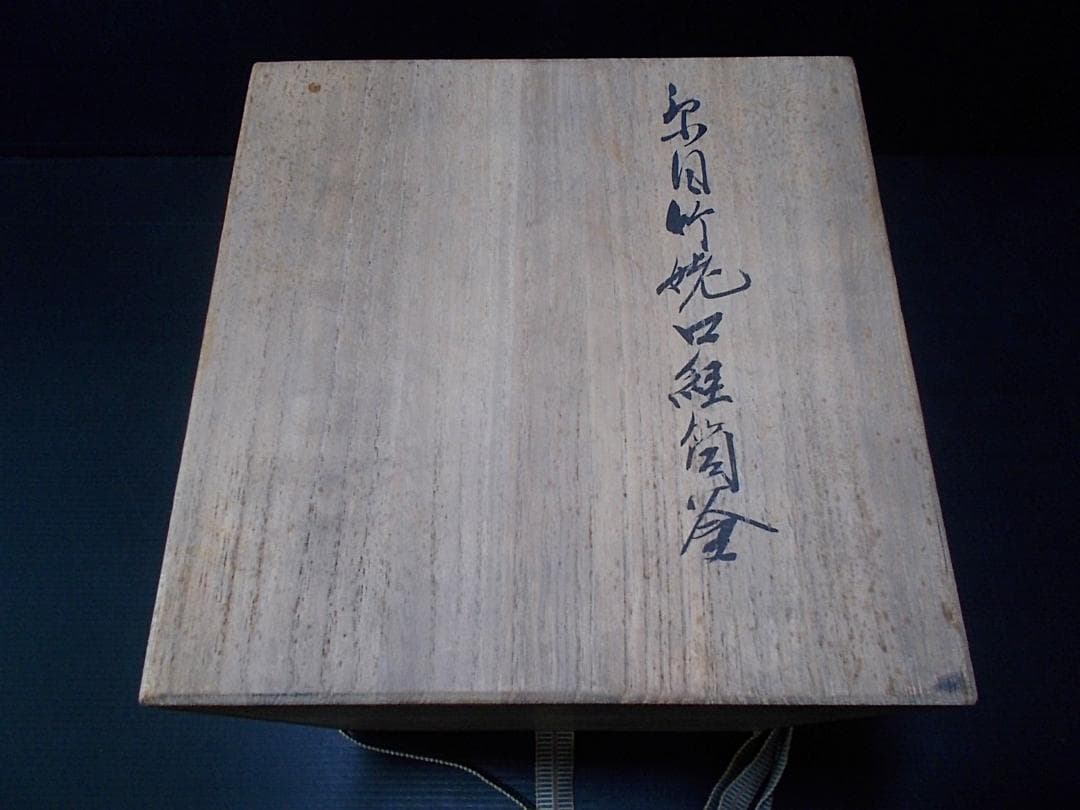 糸目竹姥口経筒釜